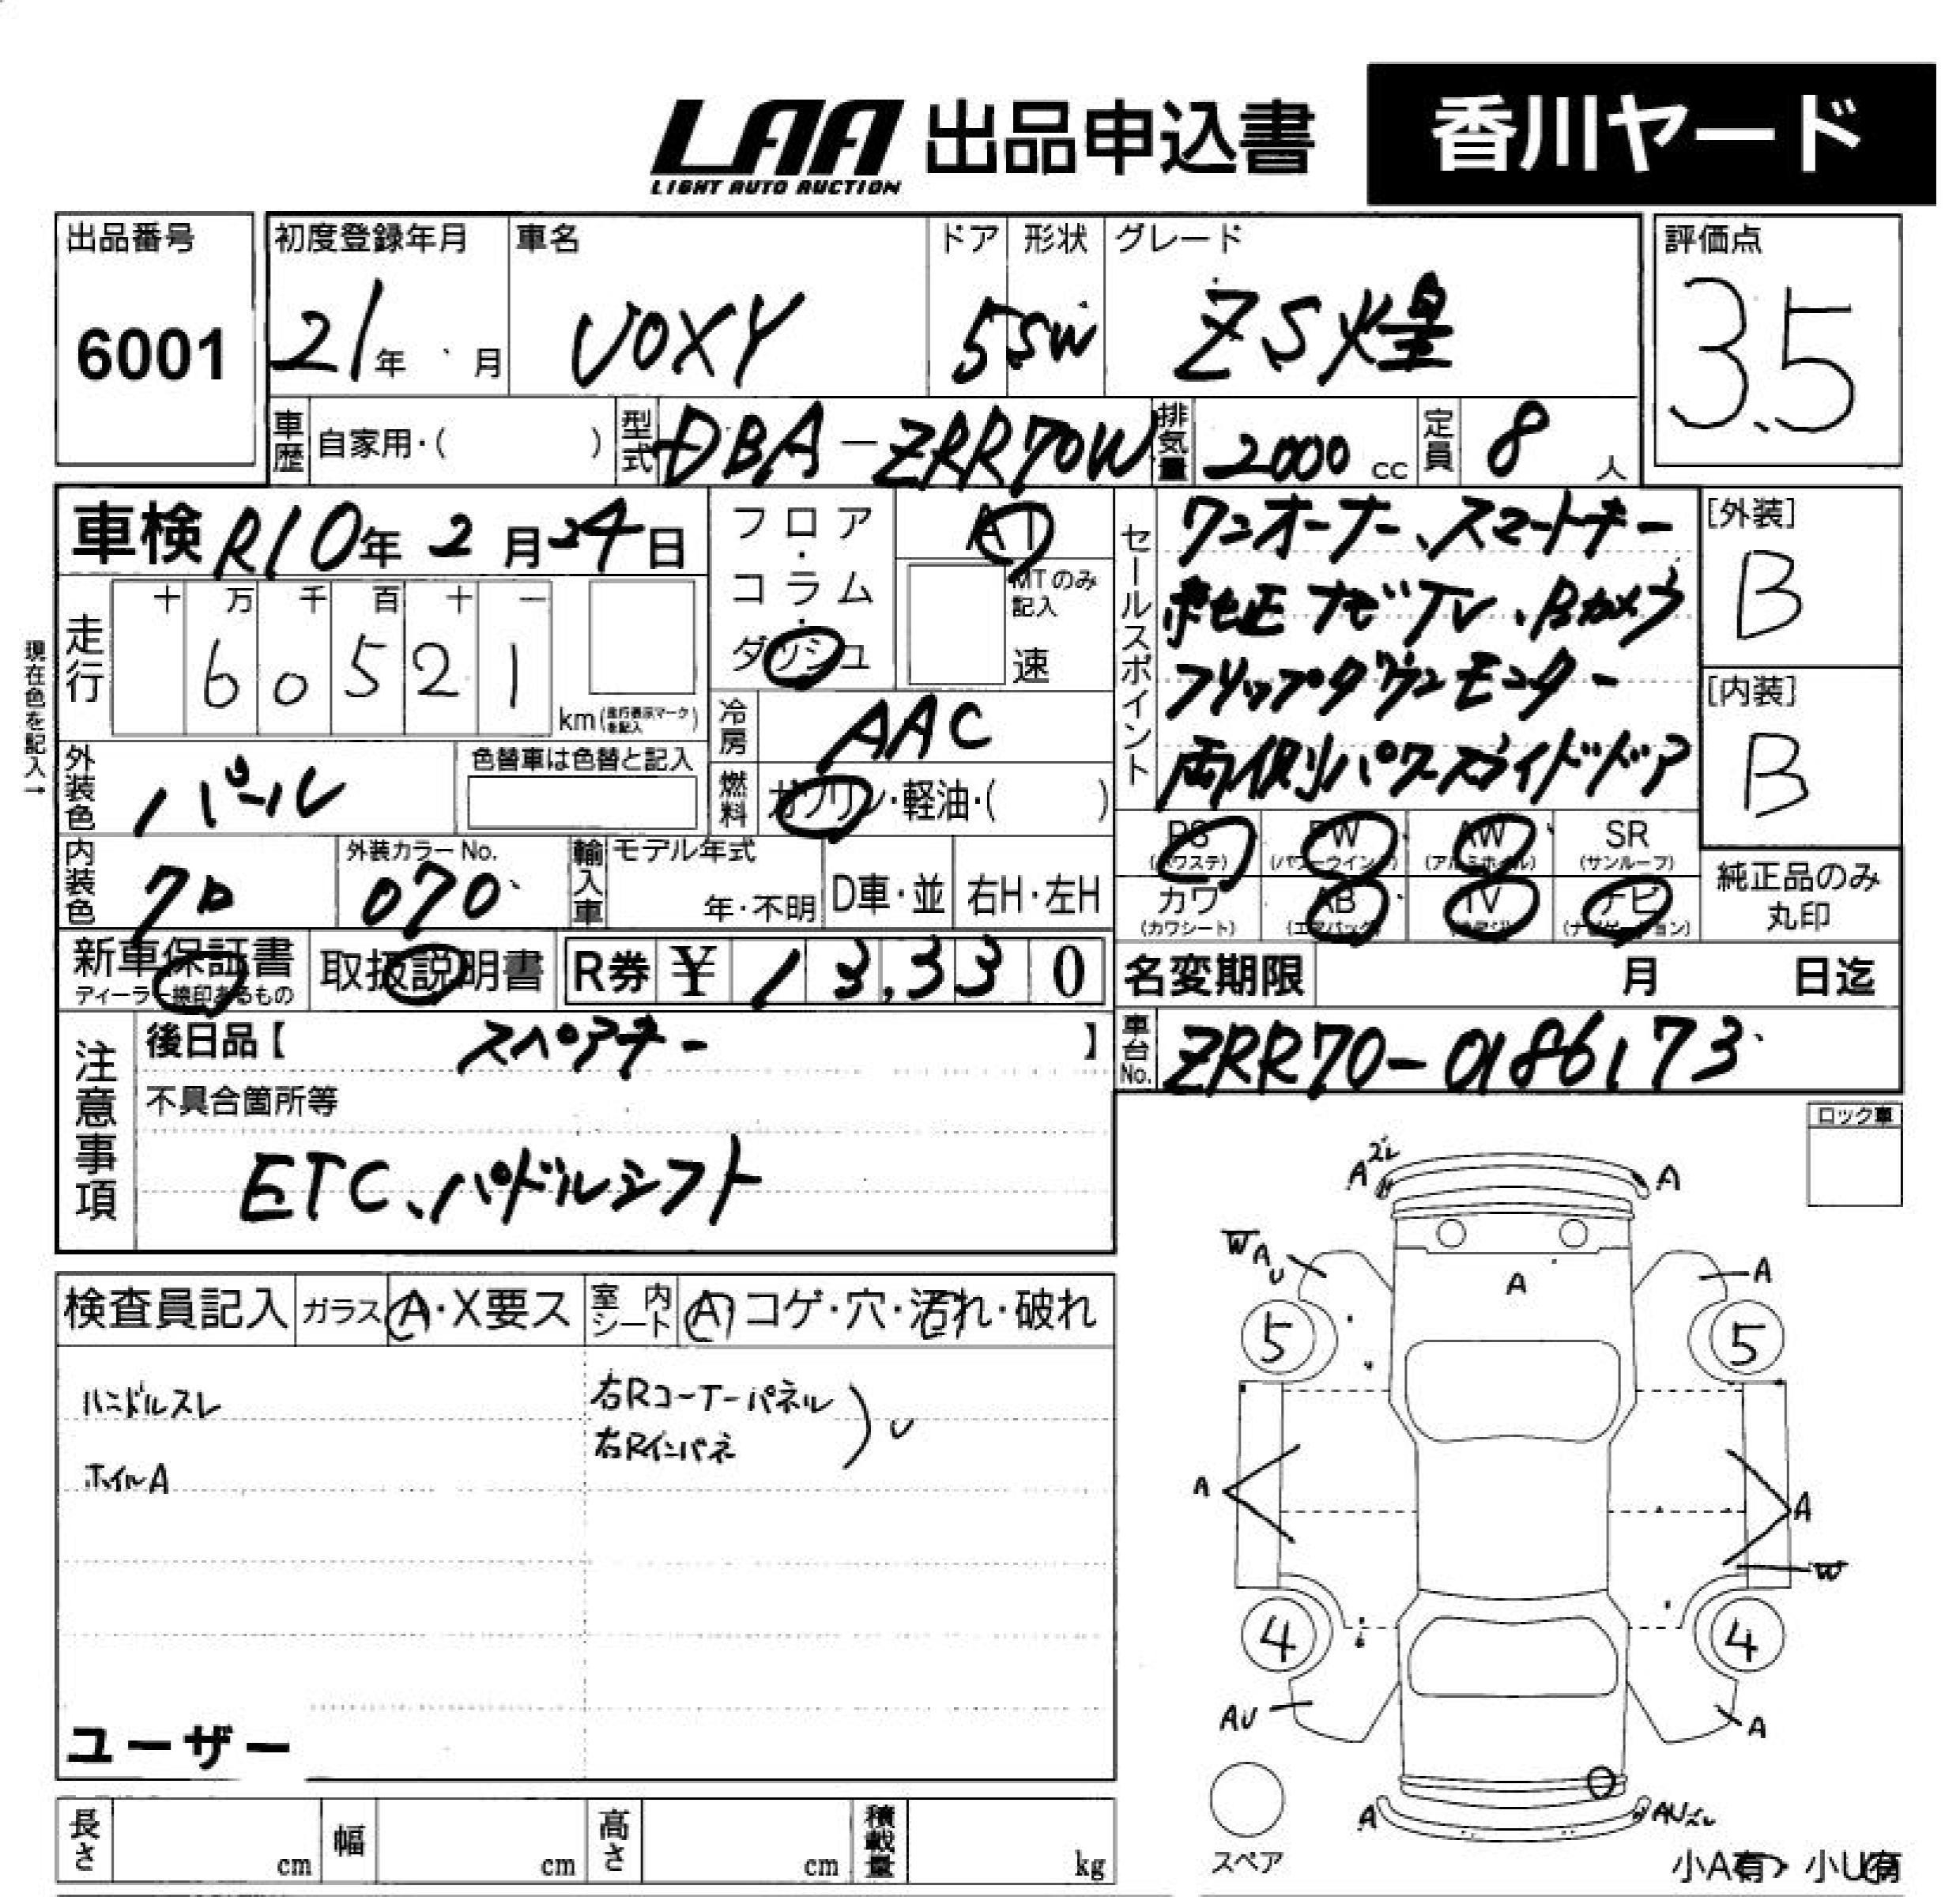 LAA 出品申込書 香川ヤード
LIGHT AUTO AUCTION
出品番号 初度登録年月 車名 ドア 形状 グレード 評価点
6001 21年 月 VOXY 5 SW ZS煌 3.5
車歴 自家用・( ) 型式 DBA-ZRR70W 排気量 2000 cc 定員 8 人
車検 R10年 2月 24日
フロア・コラム・ダッシュ
AT
MTのみ記入
速
セールスポイント
ワンオーナー、スマートキー
純正ナビTV、Bカメラ
フリップダウンモニター
両側パワースライドドア
[外装]
B
[内装]
B
走行 十 万 千 百 十 一
6 0 5 2 1
km (走行表示マークを記入)
現在色を記入→
冷房 AAC
外装色 パール 色替車は色替と記入
燃料 ガソリン・軽油・( )
PS (パワステ) PW (パワーウインド) AW (アルミホイル) SR (サンルーフ)
カワ (カワシート) AB (エアバック) TV ナビ (ナビゲーション)
純正品のみ丸印
内装色 クロ 外装カラーNo. 070 輸入車 モデル年式 年・不明 D車・並 右H・左H
新車保証書 取扱説明書 R券 ¥ 13,330
ディーラー捺印あるもの
名変期限 月 日迄
注意事項
後日品【 スペアキー 】
車台No. ZRR70-0186173
不具合箇所等
ETC、パドルシフト
ロック車
検査員記入 ガラス A・X要ス 室内シート A コゲ・穴・汚れ・破れ
ハンドルスレ 右Rコーナーパネル
右Rインパネ
U
ホイルA
ユーザー
A A
W A U A A
5 5
A A
W
4 4
AU A
A AU
スペア
小A有 小U有
長さ cm 幅 cm 高さ cm 積載量 kg